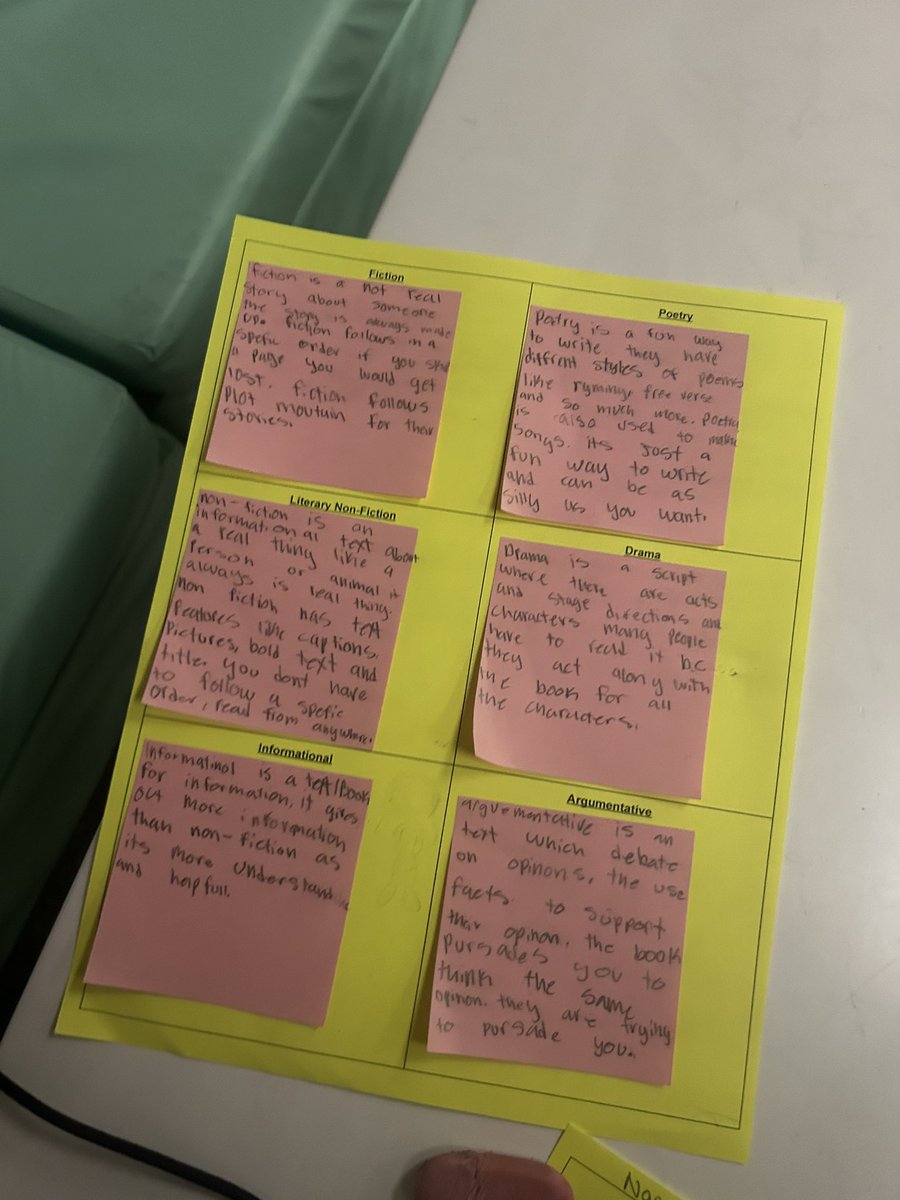 Fiction
fiction is a not real
story about someone
the story is always made
up. fiction follows in a
spefic order if you
a page you would get
lost. fiction follows
Plot moutain for their
stories.
Poetry
Poetry is a fun way
to write they have
diffrent styles of poems
like ryming, free verse
and so much more. Poetry
is also used to make
songs. its just a
fun way to write
and can be as
silly as you want.
Literary Non-Fiction
non-fiction is an
informational text about
a real thing like a
Person or animal it
always is real thing.
non fiction has text
features like captions,
Pictures, bold text and
title. you dont have
to follow a spefic
order, read from anywhere.
Drama
Drama is a script
where there are acts
and stage directions and
characters many people
have to read it b.c
they act along with
the book for all
the characters.
Informational
Informatinol is a text/Book
for information, it gives
out more information
than non-fiction as
its more understand
and helpfull.
Argumentative
arguementative is an
text which debate
on opinons, the use
facts to support
their opinon. the book
Pursades you to
think the same
opinon. they are trying
to pursade you.